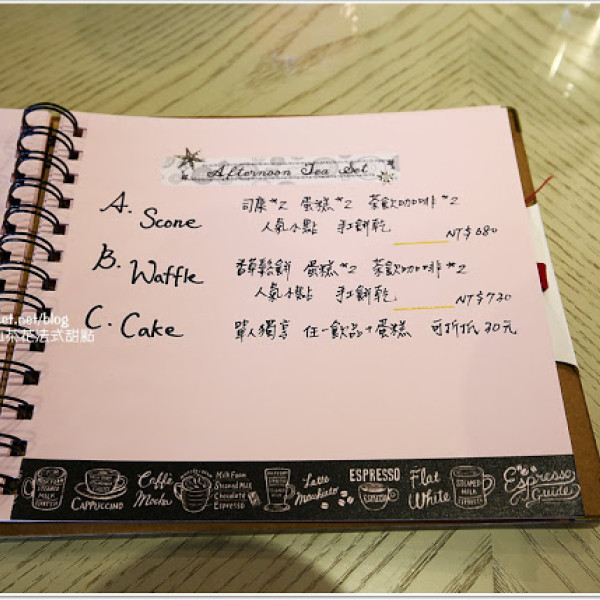 Afternoon Tea Set
A. Scone 司康*2 蛋糕*2 茶飲咖啡*2
人氣小點 手工餅乾 NT$680
B. Waffle 香草鬆餅 蛋糕*2 茶飲咖啡*2
人氣小點 手工餅乾 NT$730
C. Cake 單人獨享 任一飲品+蛋糕 可折抵30元
et.net/blog
茶花法式甜點
CAPPUCCINO
Caffè Mocha
Milk Foam
Steamed Milk
Chocolate
Espresso
Latte Macchiato
ESPRESSO
Flat White
STEAMED MILK
Espresso Guide